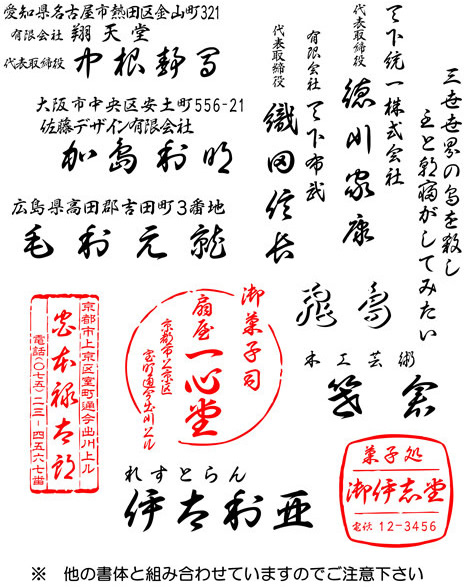 愛知県名古屋市熱田区金山町321
有限会社 翔天堂
代表取締役 中根静男
大阪市中央区安土町556-21
佐藤デザイン有限会社
加島利明
広島県高田郡吉田町3番地
毛利元就
三世世界の烏を殺し
主と朝寝がしてみたい
天下統一株式会社
代表取締役 徳川家康
有限会社 天下布武
代表取締役 織田信長
飛鳥
木工芸術
京都市上京区室町通今出川上ル
禄太郎
電話(〇七五)二三ー四五六七番
御菓子司
扇屋 一心堂
京都市上京区
室町通今出川上ル
れすとらん
伊太利亜
菓子処
御伊志堂
電話 12-3456
※ 他の書体と組み合わせていますのでご注意下さい